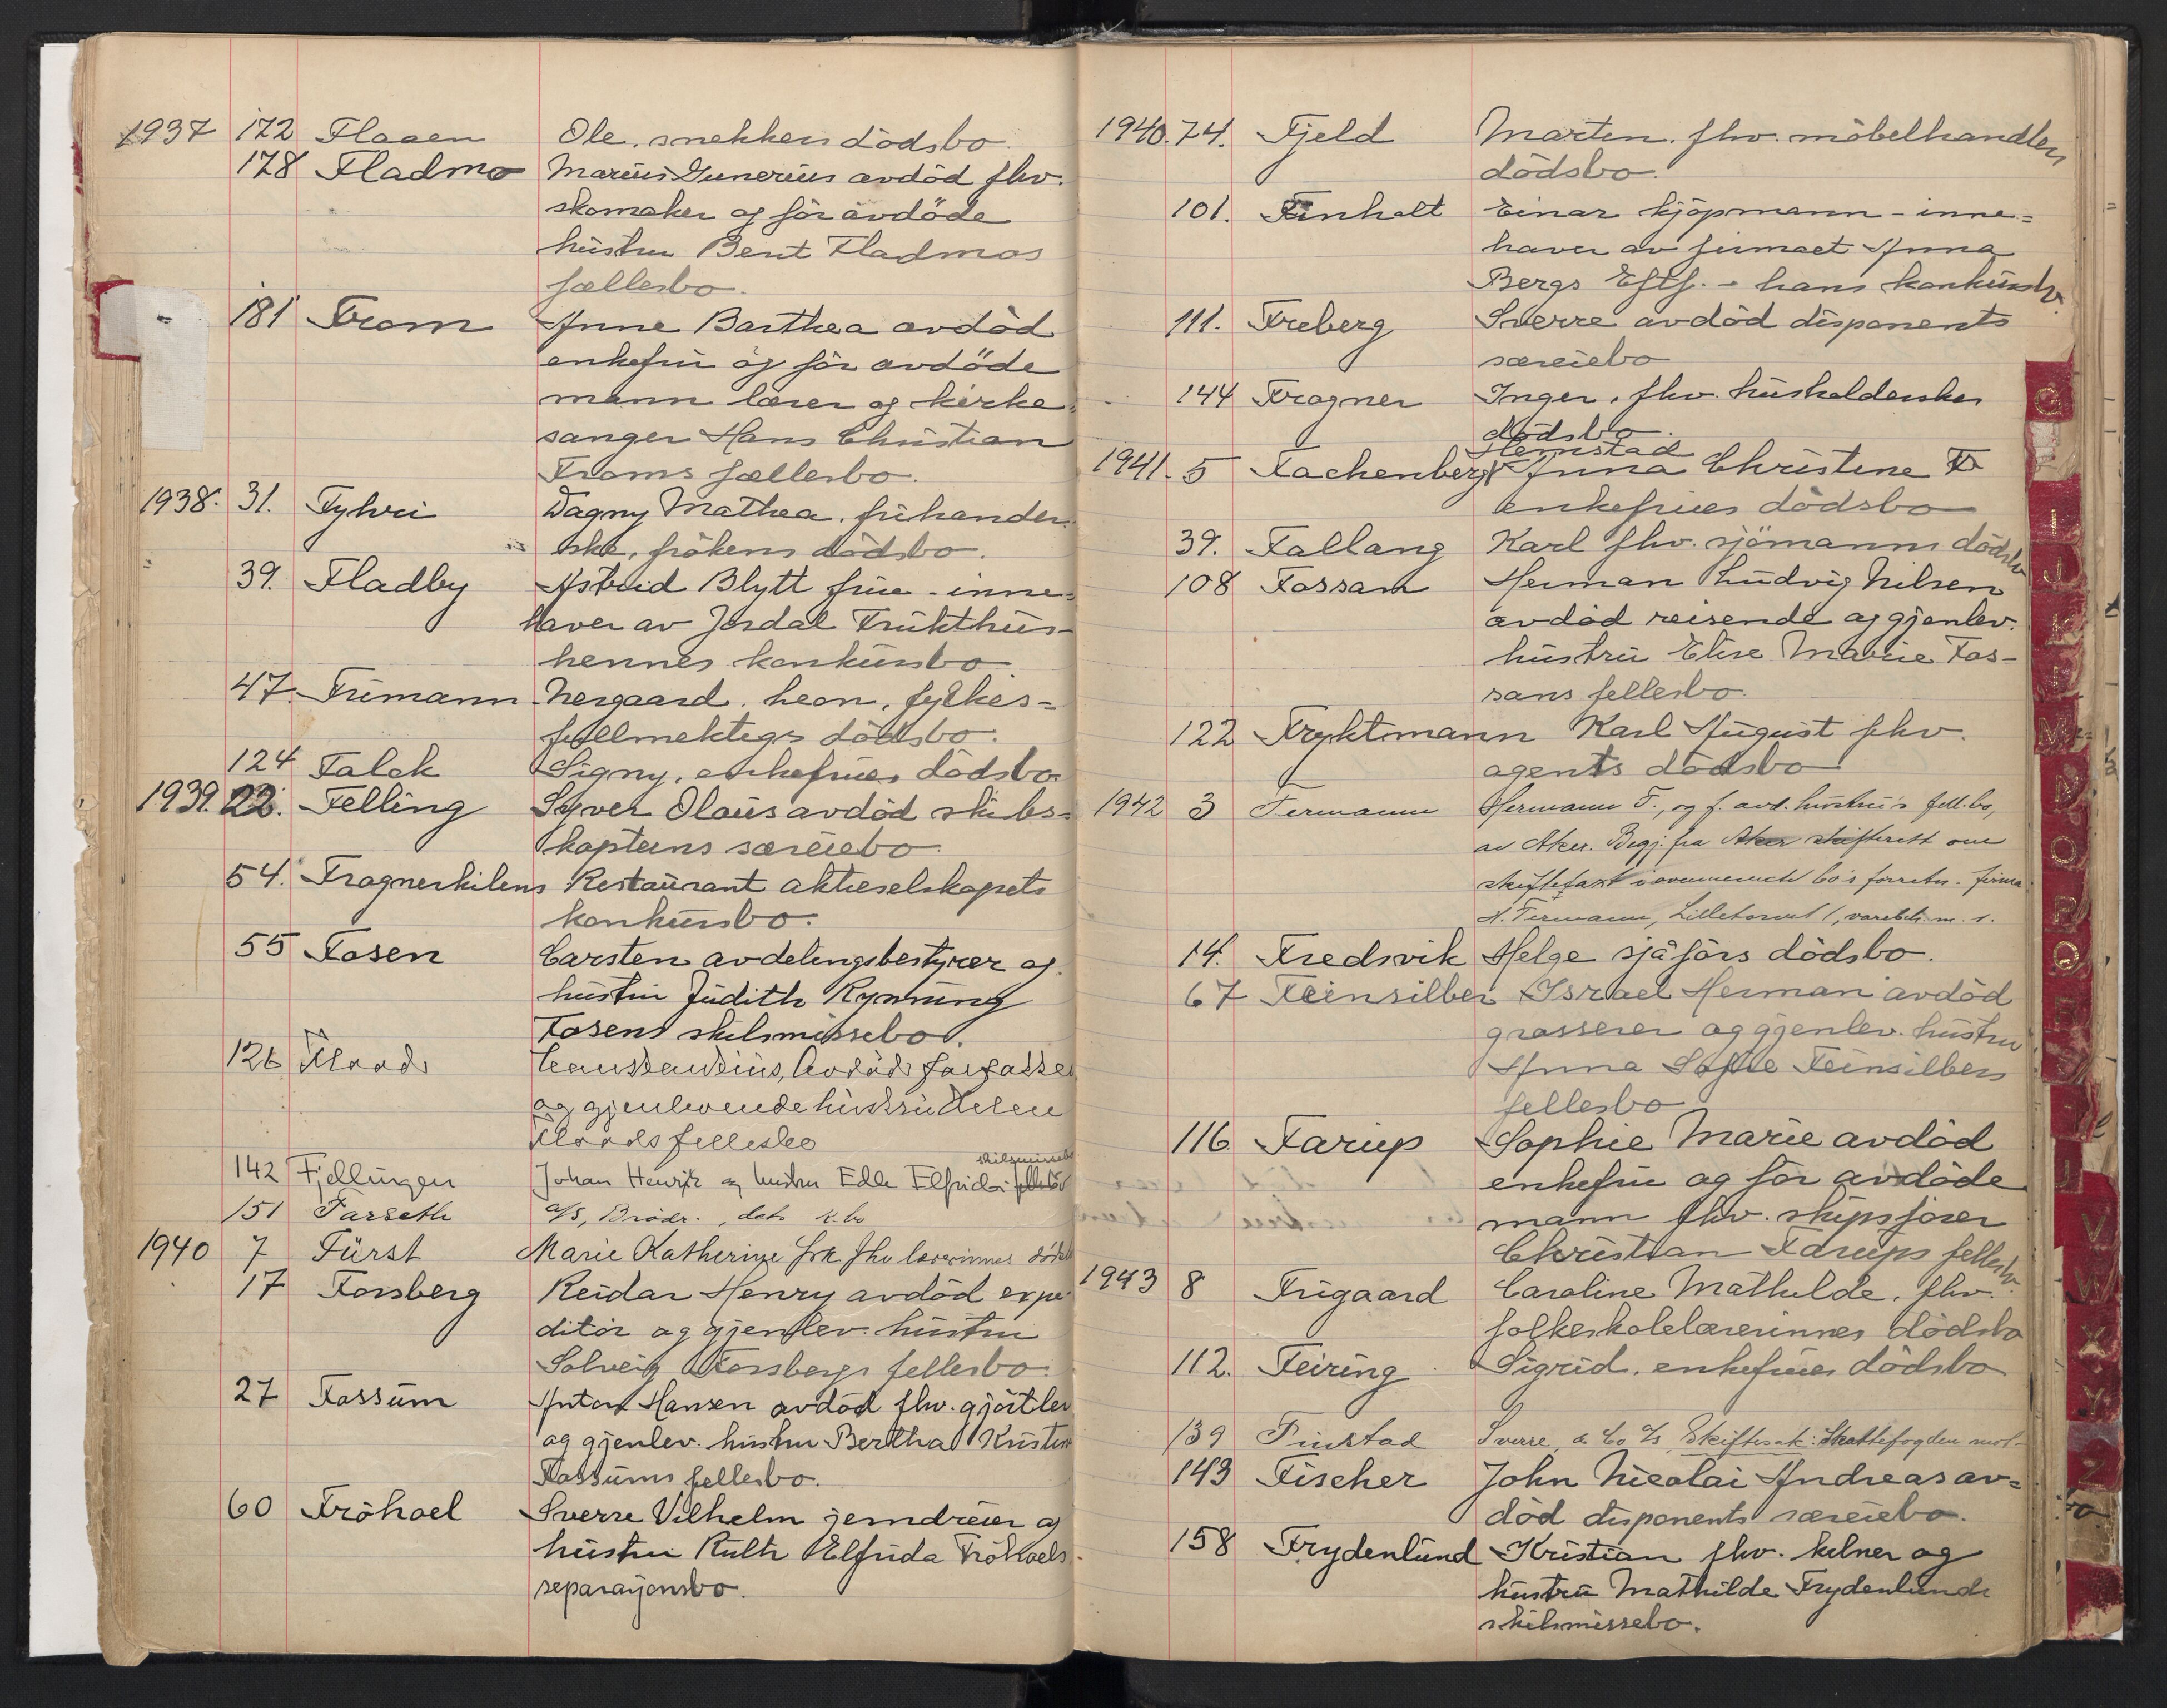 1937 172 Flaaen Ole, snekkers dödsbo.
178 Fladmo Marius Gunerius avdöd fhv.
skomaker og för avdöde
hustru Berit Fladmos
fællesbo.
181 From Anne Barthea avdöd
enkefru og för avdöde
mann lærer og kirke=
sanger Hans Christian
Froms fællesbo.
1938. 31. Fylvri Dagny Mathea, fruhander.
ske, frökens dödsbo.
39. Fladby Astrid Blytt frue - inne=
haver av Jordal Frukthus -
hennes konkursbo
47. Frimann-Nergaard, Leon, fylkes=
fullmektigs dödsbo.
124 Falck Signy, enkefrues dödsbo
1939. 22. Felling Syver Olaus avdöd skibs=
kapteins særeiebo.
54. Frognerkilens Restaurant aktieselskapets
konkursbo.
55 Fosen Carsten avdelingsbestyrer og
hustru Judith Rynning
Fosens skilsmissebo.
126 Floods Constantius, Avdöds forfatter
og gjenlevende hustru Helen
Floods fellesbo
142 Fjellingen Johan Henrik og hustru Edle Elfrida's skilsmissebo
151 Farseth A/S, Brödr., dets k.bo
1940 7 Fürst Marie Katherine frk fhv lærerinnes dödsb
17 Forsberg Reidar Henry avdöd expe-
ditör og gjenlev. hustru
Solveig Forsbergs fellesbo.
27 Fossum Anton Hansen avdöd fhv. gjörtler
og gjenlev. hustru Bertha Kristine
Fossums fellesbo.
60 Fröhoel Sverre Vilhelm jerndreier og
hustru Ruth Elfrida Fröhoels
separasjonsbo.
1940. 74. Fjeld Marten, fhv. möbelhandlers
dödsbo.
101. Finholt Einar kjöpmann - inne=
haver av firmaet Anna
Bergs Eftf. - hans konkursbo.
111. Freberg Sverre avdöd disponents
særeiebo
144 Frogner Inger, fhv. husholderskes
dödsbo.
Hernstad
1941. 5 Fachenberg Anna Christine F
enkefrues dödsbo
39. Fallang Karl fhv. sjömanns dödsbo
108 Fossan Herman Ludvig Nilsen
avdöd reisende og gjenlev.
hustru Elise Marie Fos-
sans fellesbo.
122 Fryktmann Karl August fhv.
agents dödsbo
1942 3 Fermann Hermann F., og f. avd. hustru's fell.bo,
av Aker. Begj. fra Aker skifterett om
skiftetakt i ovennevnte bo's forretn. - firma
H. Fermann, Lilletorvet 1, varebeh. m. v.
14. Fredsvik Helge sjåförs dödsbo.
67 Feinsilber Israel Herman avdöd
grosserer og gjenlev. hustru
Anna Sofie Feinsilbers
fellesbo
116. Farup Sophie Marie avdöd
enkefru og för avdöde
mann fhv. skipsförer
Christian Farups fellesbo.
1943 8 Frigaard Caroline Mathilde, fhv.
folkeskolelærerinnes dödsbo
112. Feiring Sigrid, enkefrues dödsbo
139 Finstad Sverre, & Co A/S, Skiftesak: Skattefogden mot -
143 Fischer John Nicolai Andreas av=
död disponents særeiebo.
158 Frydenlund Kristian fhv. kelner og
hustru Mathilde Frydenlunds
skilsmissebo.
G
I
J
K
L
M
N
O
P
Q
R
S
T
U
V
W
X
Y
Z